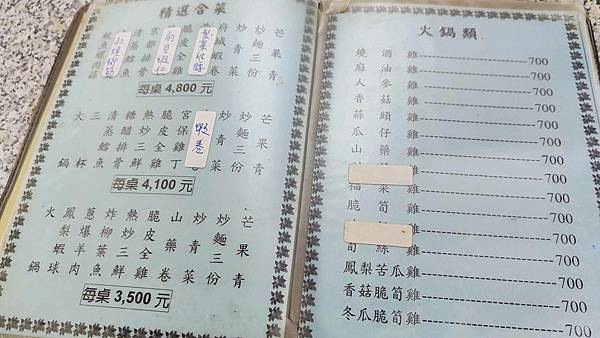 精選合菜
芒果青
炒麵三份
炒青菜
府城蝦卷
脆皮全雞
京都排骨
清蒸鱈魚
每桌 4,800 元
芒果青
炒麵三份
炒青菜
蝦卷
宮保雞丁
脆皮全雞
熱炒三鮮
糖醋排骨
清蒸鱈魚
三杯
火鍋
每桌 4,100 元
芒果青
炒麵三份
炒青菜
山藥卷
脆皮全雞
熱炒三鮮
炸柳葉魚
蔥爆羊肉
鳳梨蝦球
火鍋
每桌 3,500 元
火鍋類
燒酒雞 700
麻油雞 700
人參雞 700
香菇雞 700
蒜頭雞 700
瓜仔雞 700
山藥雞 700
福菜雞 700
脆筍雞 700
筍絲雞 700
鳳梨苦瓜雞 700
香菇脆筍雞 700
冬瓜脆筍雞 700